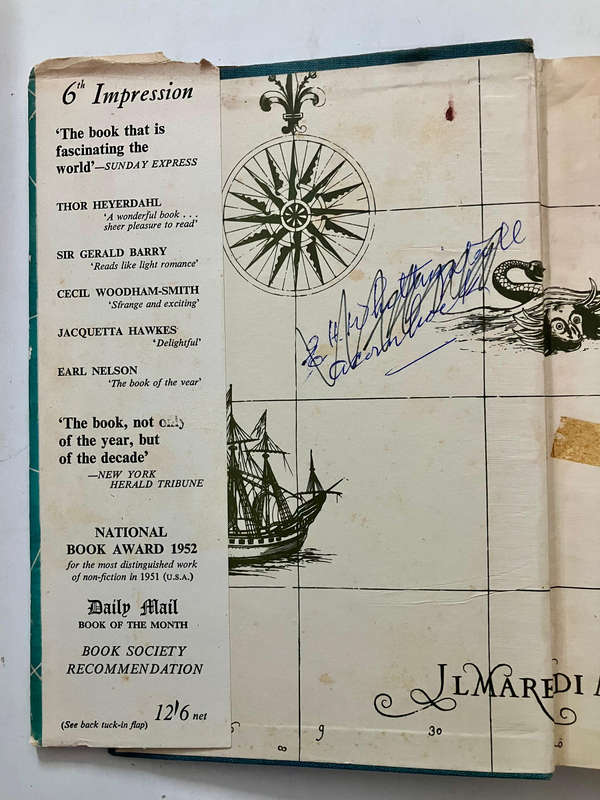 6th Impression
'The book that is
fascinating the
world'—SUNDAY EXPRESS
THOR HEYERDAHL
'A wonderful book . . .
sheer pleasure to read'
SIR GERALD BARRY
'Reads like light romance'
CECIL WOODHAM-SMITH
'Strange and exciting'
JACQUETTA HAWKES
'Delightful'
EARL NELSON
'The book of the year'
'The book, not only
of the year, but
of the decade'
—NEW YORK
HERALD TRIBUNE
NATIONAL
BOOK AWARD 1952
for the most distinguished work
of non-fiction in 1951 (U.S.A.)
Daily Mail
BOOK OF THE MONTH
BOOK SOCIETY
RECOMMENDATION
12/6 net
(See back tuck-in flap)
IL MARE DI
8
9
30